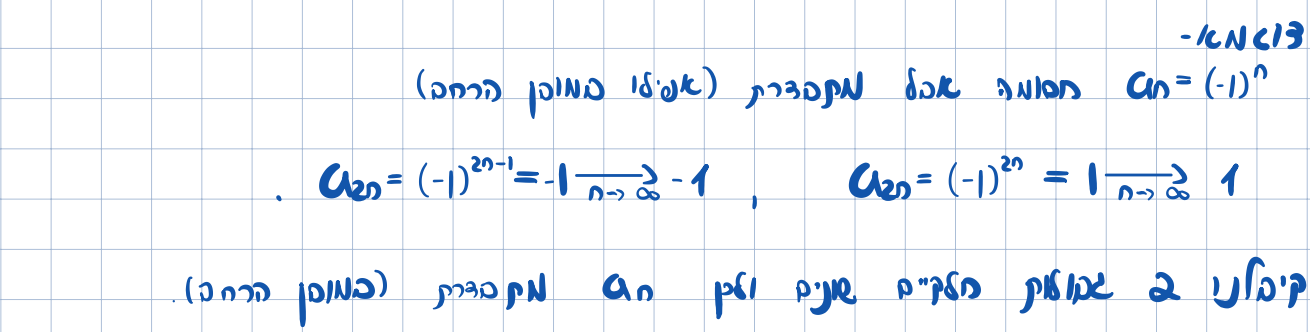 דוגמא-
a_n = (-1)^n חסומה אבל מתבדרת (אפילו במובן הרחב)
a_{2n} = (-1)^{2n} = 1 →_{n→∞} 1 , a_{2n} = (-1)^{2n-1} = -1 →_{n→∞} -1 .
קיבלנו 2 גבולות חלקיים שונים ולכן a_n מתבדרת (במובן הרחב).